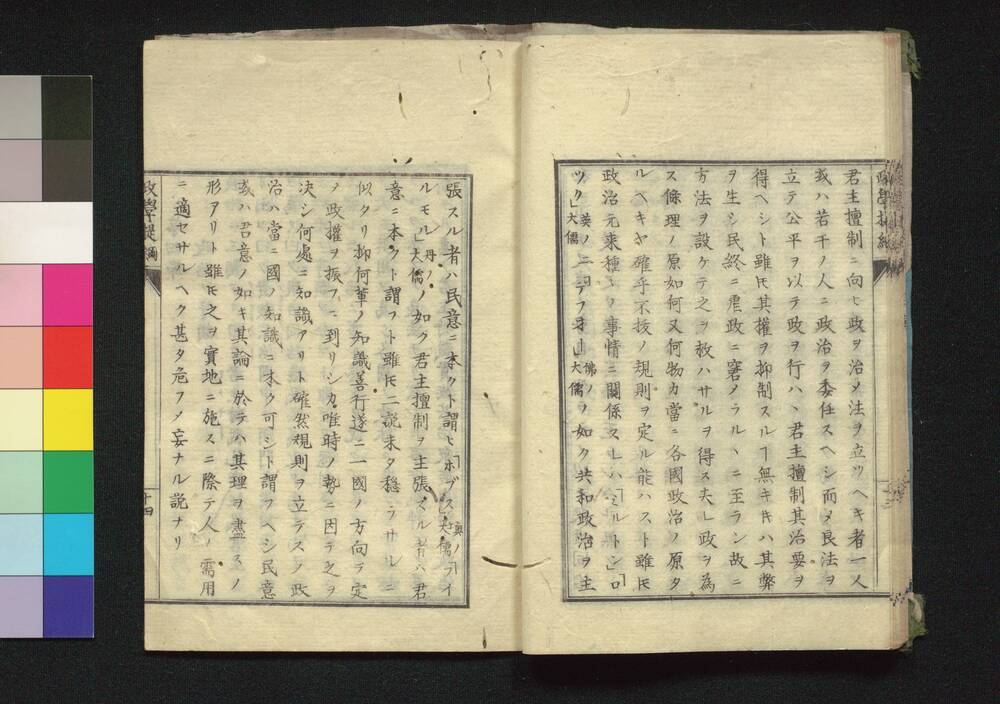 君主擅制ニ向ヒ政ヲ治メ法ヲ立ツヘキ者一人
或ハ若干ノ人ニ政治ヲ委任スヘシ而メ良法ヲ
立テ公平ヲ以テ政ヲ行ハヽ君主擅制其治要ヲ
得ヘシト雖𪜈其權ヲ抑制スルヿ無キ𪜈ハ其弊
ヲ生シ民終ニ虐政ニ窘メラルヽニ至ラン故ニ
方法ヲ設ケテ之ヲ救ハサルヲ得ス夫レ政ヲ為
ス條理ノ原如何又何物カ當ニ各國政治ノ原タ
ルヘキヤ確乎不抜ノ規則ヲ定ル能ハスト雖𪜈
政治元来種々ノ事情ニ關係スレハ「ミルトン」「ロ
ツク」英ノ二大儒「テフオー」佛ノ大儒ノ如ク共和政治ヲ主
張スル者ハ民意ニ本クト謂ヒ「ホブス」英ノ大儒「ライ
ルモル」丹ノ大儒ノ如ク君主擅制ヲ主張スル者ハ君
意ニ本クト謂フト雖𪜈二説未タ穏カラサルニ
似タリ抑何輩ノ知識善行遂ニ一國ノ方向ヲ定
ノ政權ヲ振フニ到リシカ唯時ノ勢ニ因テ之ヲ
決シ何處ニ知識アリト確然規則ヲ立テスシ政
治ハ當ニ國ノ知識ニ本ク可シト謂フヘシ民意
或ハ君意ノ如キ其論ニ於テハ其理ヲ盡スノ
形アリト雖𪜈之ヲ實地ニ施スニ際テ人ノ需用
ニ適セサルヘク甚タ危フメ妄ナル説ナリ
政學提綱
十四